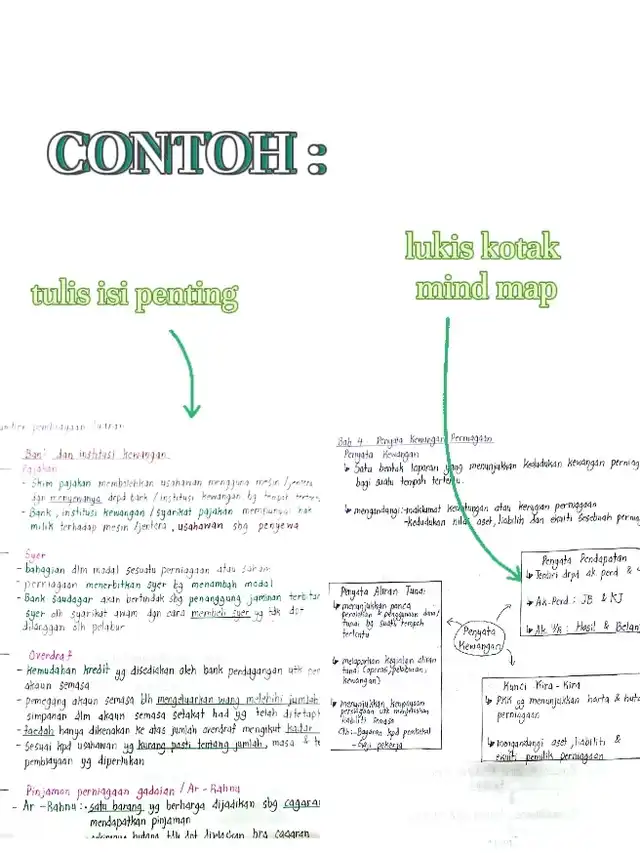 CONTOH :
tulis isi penting
lukis kotak
mind map
pembiagaan luaran
Bank dan institusi kewangan
Pajakan
- Skim pajakan membolehkan usahawan mengguna mesin / jentera
dan menyewanya drpd bank / institusi kewangan bg tempoh
- Bank, institusi kewangan / syarikat pajakan mempunyai hak
milik terhadap mesin / jentera, usahawan sbg penyewa
Syer
- bahagian dlm modal sesuatu perniagaan atau saham
- perniagaan menerbitkan syer bg menambah modal
- Bank saudagar akan bertindak sbg penanggung jaminan terbitan
syer olh syarikat awam dgn cara membeli syer yg tdk dpt
dilanggan olh pelabur
Overdraf
- Kemudahan kredit yg disediakan oleh bank perdagangan utk
akaun semasa
- pemegang akaun semasa blh mengeluarkan wang melebihi jumlah
simpanan dlm akaun semasa setakat had yg telah ditetap
- faedah hanya dikenakan ke atas jumlah overdraf mengikut kadar
- Sesuai kpd usahawan yg kurang pasti tentang jumlah, masa &
pembiayaan yg diperlukan
Pinjaman perniagaan gadaian / Ar - Rahnu
- Ar - Rahnu : - satu barang yg berharga dijadikan sbg cagaran
mendapatkan pinjaman
hutang blh dpt cagaran
Bab 4 : Penyata Kewangan Perniagaan
Penyata Kewangan
↳ Satu bentuk laporan yang menunjukkan kedudukan kewangan perniag
bagi suatu tempoh tertentu.
↳ mengandungi :- maklumat keuntungan atau kerugian perniagaan
- kedudukan nilai aset, liabiliti dan ekuiti sesebuah pernia
Penyata Aliran Tunai
↳ menunjukkan punca
perolehan & penggunaan dana /
tunai bg suatu tempoh
tertentu
↳ melaporkan kegiatan aliran
tunai (operasi, pelaburan,
kewangan)
↳ menunjukkan kemampuan
perniagaan utk menjelaskan
liabiliti semasa
Cth :- Bayaran kpd pembekal
- Gaji pekerja
Penyata
Kewangan
Penyata Pendapatan
↳ Terdiri drpd ak. perd &
↳ Ak. Perd : JB & KJ
↳ Ak. UR : Hasil & Belanj
Kunci Kira - Kira
↳ PKK yg menunjukkan harta & huta
perniagaan
↳ mengandungi aset, liabiliti &
ekuiti pemilik perniagaan